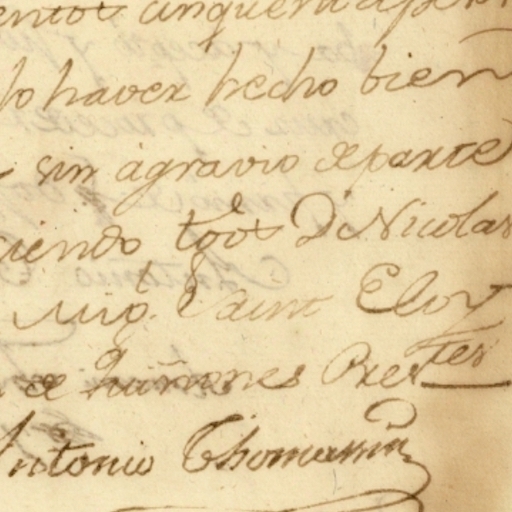 entos cinquenta
lo haver hecho bien
sin agravio de parte
siendo tgos Dn Nicolas
Migl. Saint Eloy
de Quiñones Press.tes
Antonio Thomassin